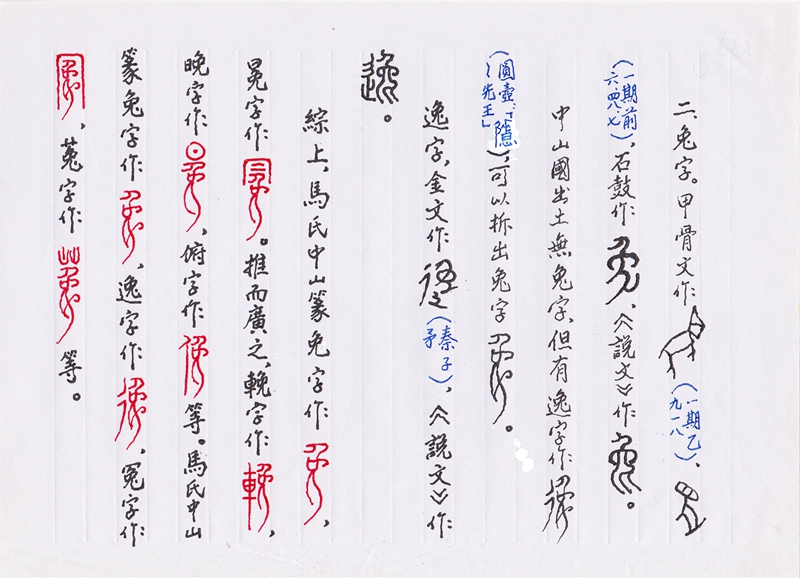 二、兔字。甲骨文作（一期乙九一八）、
（一期前六·四八·七）、石鼓作，《說文》作。
中山國出土無兔字，但有逸字作
（圓壺：「隱逸先王」），可以拆出兔字。
逸字，金文作（秦子矛），《說文》作
。
綜上，馬氏中山篆免字作，
冕字作。推而廣之，輓字作，
晚字作，俯字作等。馬氏中山
篆兔字作，逸字作，冤字作
，菟字作等。